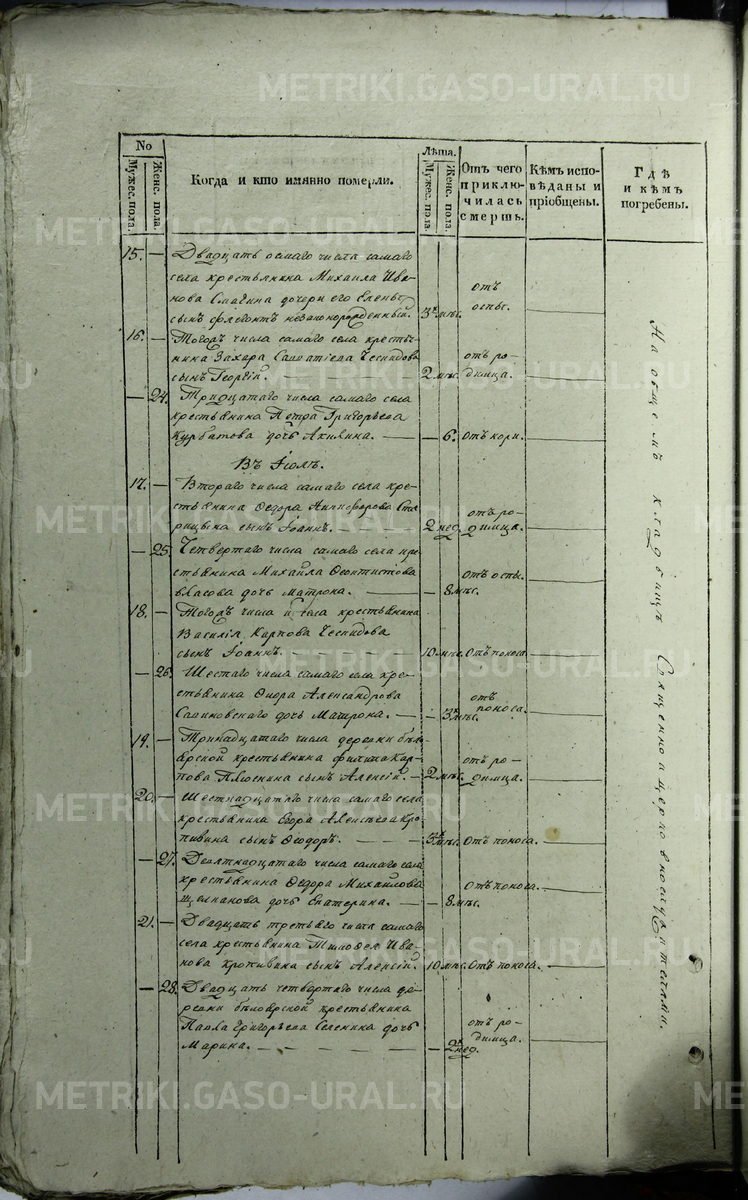 METRIKI.GASO-URAL.RU
No
Мужес. пола.
Женс. пола.
Когда и кто имянно померли.
Лѣта.
Мужес. пола.
Женс. пола.
Отъ чего приклю-
чилась
смерть.
Кѣмъ испо-
вѣданы и
прiобщены.
Гдѣ
и кѣмъ
погребены.
15. — Двадцать осмаго числа самаго
села крестьянина Михаила Ива-
нова Смагина дочери его Елены
сынъ Флегонтъ незаконорожденный. 3х мѣс. отъ оспы.
16. — Тогожъ числа самаго села крестья-
нина Захара Савватiева
сынъ Георгiй. — 2 мѣс. отъ ро-
димца.
— 24. Тридцатаго числа самаго села
крестьянина Петра Григорьева
Курбатова дочь Акилина. — — 6. Отъ кори.
Въ Iюлѣ.
17. — Втораго числа самаго села кре-
стьянина Федора Никифорова Ста-
рицына сынъ Iоаннъ. — 2 нед. отъ ро-
димца.
— 25. Четвертаго числа самаго села кре-
стьянина Михаила Феоктистова
Власова дочь Матрона. — — 8 мѣс. Отъ оспы.
18. — Тогожъ числа и села крестьянина
Василiя Карпова
сынъ Iоаннъ. 10 мѣс. Отъ поноса.
— 26. Шестаго числа самаго села кре-
стьянина Александрова
дочь Матрона. — — 3х мѣс. отъ
поноса.
19. — Тринадцатаго числа деревни бѣло-
ярской крестьянина Филипа Кар-
пова сынъ Алексiй. — 2 мѣс. отъ ро-
димца.
20. — Шестнадцатаго числа самаго села
крестьянина Егора Алексѣева Кро-
пивина сынъ Феодоръ. — 3х мѣс. Отъ поноса.
— 27. Девятнадцатаго числа самаго села
крестьянина Федора Михаилова
дочь Екатерина. — — 8 мѣс. Отъ поноса.
21. — Двадцать третьяго числа самаго
села крестьянина Тимофея Ива-
нова Кропивина сынъ Алексiй. 10 мѣс. Отъ поноса.
— 28. Двадцать четвертаго числа де-
ревни бѣлоярской крестьянина
Павла Григорьева Селенина дочь
Марина. — — 2 нед. отъ ро-
димца.
На общемъ кладбищѣ Священно и церковнослужителями.